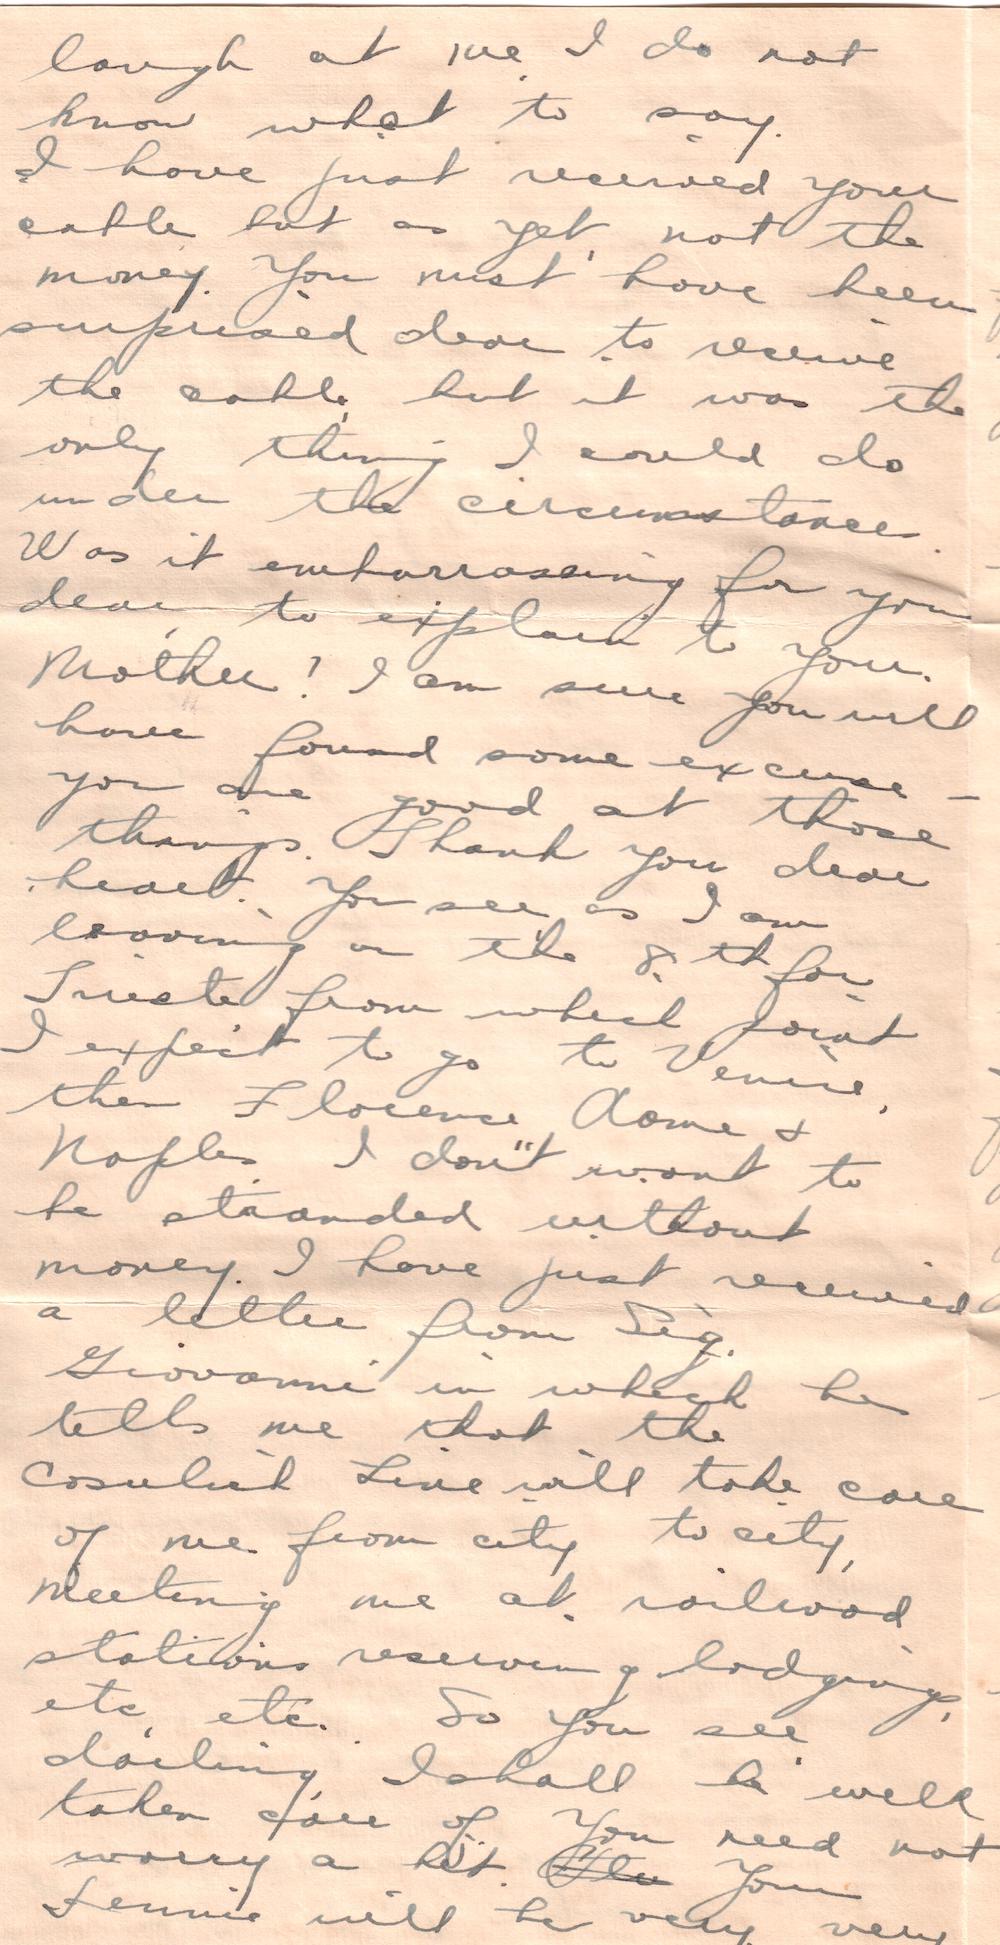 laugh at me. I do not
know what to say.
I have just received your
cable but as yet, not the
money. You must have been
surprised dear to receive
the cable, but it was the
only thing I could do
under the circumstances.
Was it embarrassing for you
dear, to explain to your
Mother? I am sure you will
have found some excuse -
you are good at those
things. Thank you dear
heart. You see, as I am
leaving on the 8th for
Trieste from which point
I expect to go to Venice,
then Florence Rome &
Naples I don't want to
be stranded without
money. I have just received
a letter from Sig.
Giovanni in which he
tells me that the
Cosulich Line will take care
of me from city to city,
meeting me at railroad
stations reserving lodgings,
etc, etc. So you see
darling I shall be well
taken care of. You need not
worry a bit. Your
Fennie will be very, very